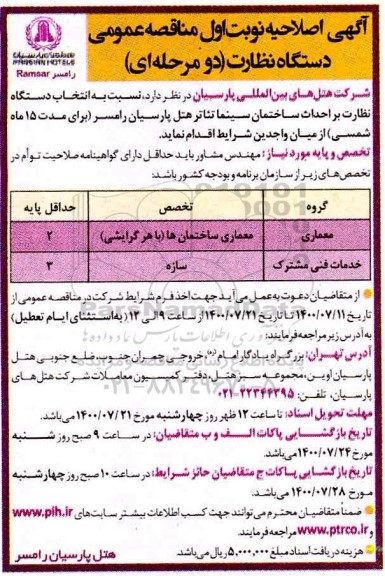 آگهی اصلاحیه نوبت اول مناقصه عمومی
دستگاه نظارت (دو مرحله‌ای)
PARSIAN HOTELS
رامسر Ramsar
شرکت هتل‌های بین‌المللی پارسیان در نظر دارد، نسبت به انتخاب دستگاه
نظارت بر احداث ساختمان سینما تئاتر هتل پارسیان رامسر (برای مدت ۱۵ ماه
شمسی) از میان واجدین شرایط اقدام نماید.
تخصص و پایه مورد نیاز: مهندس مشاور باید حداقل دارای گواهینامه صلاحیت توأم در
تخصص‌های زیر از سازمان برنامه و بودجه کشور باشد:
گروه تخصص حداقل پایه
معماری معماری ساختمان ها (با هر گرایشی) ۲
خدمات فنی مشترک سازه ۳
از متقاضیان دعوت به عمل می آید جهت اخذ فرم شرایط شرکت در مناقصه عمومی از
تاریخ ۱۴۰۰/۰۷/۱۱ تا تاریخ ۱۴۰۰/۰۷/۲۱ از ساعت ۹ الی ۱۲ (به استثنای ایام تعطیل)
به آدرس زیر مراجعه فرمایند:
آدرس تهران: بزرگراه یادگار امام (ره)، خروجی چمران جنوب، ضلع جنوبی هتل
پارسیان اوین، مجموعه سبز هتل، دفتر کمیسیون معاملات شرکت هتل‌های
پارسیان، تلفن: ۲۲۳۴۴۳۹۵-۰۲۱
مهلت تحویل اسناد: تا ساعت ۱۲ ظهر روز چهارشنبه مورخ ۱۴۰۰/۰۷/۲۱ می‌باشد.
تاریخ بازگشایی پاکات الف و ب متقاضیان: در ساعت ۹ صبح روز شنبه
مورخ ۱۴۰۰/۰۷/۲۴ می‌باشد.
تاریخ بازگشایی پاکات ج متقاضیان حائز شرایط: در ساعت ۱۰ صبح روز چهارشنبه
مورخ ۱۴۰۰/۰۷/۲۸ می‌باشد.
ضمناً متقاضیان محترم می‌توانند جهت کسب اطلاعات بیشتر سایت‌های www.pih.ir
و www.ptrco.ir مراجعه فرمایند.
هزینه دریافت اسناد مبلغ ۵,۰۰۰,۰۰۰ ریال می‌باشد.
هتل پارسیان رامسر